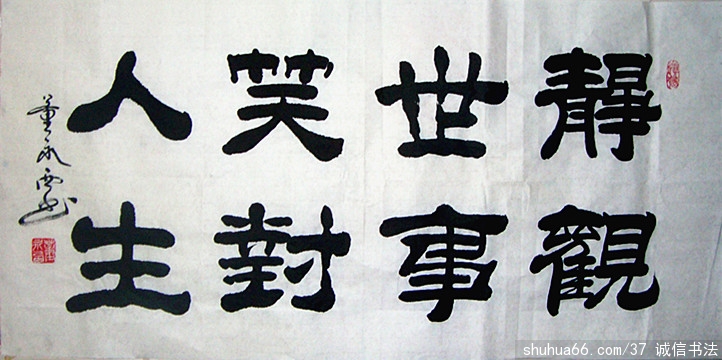 靜觀
世事
笑對
人生
董永西书
shuhua66.com/37 诚信书法